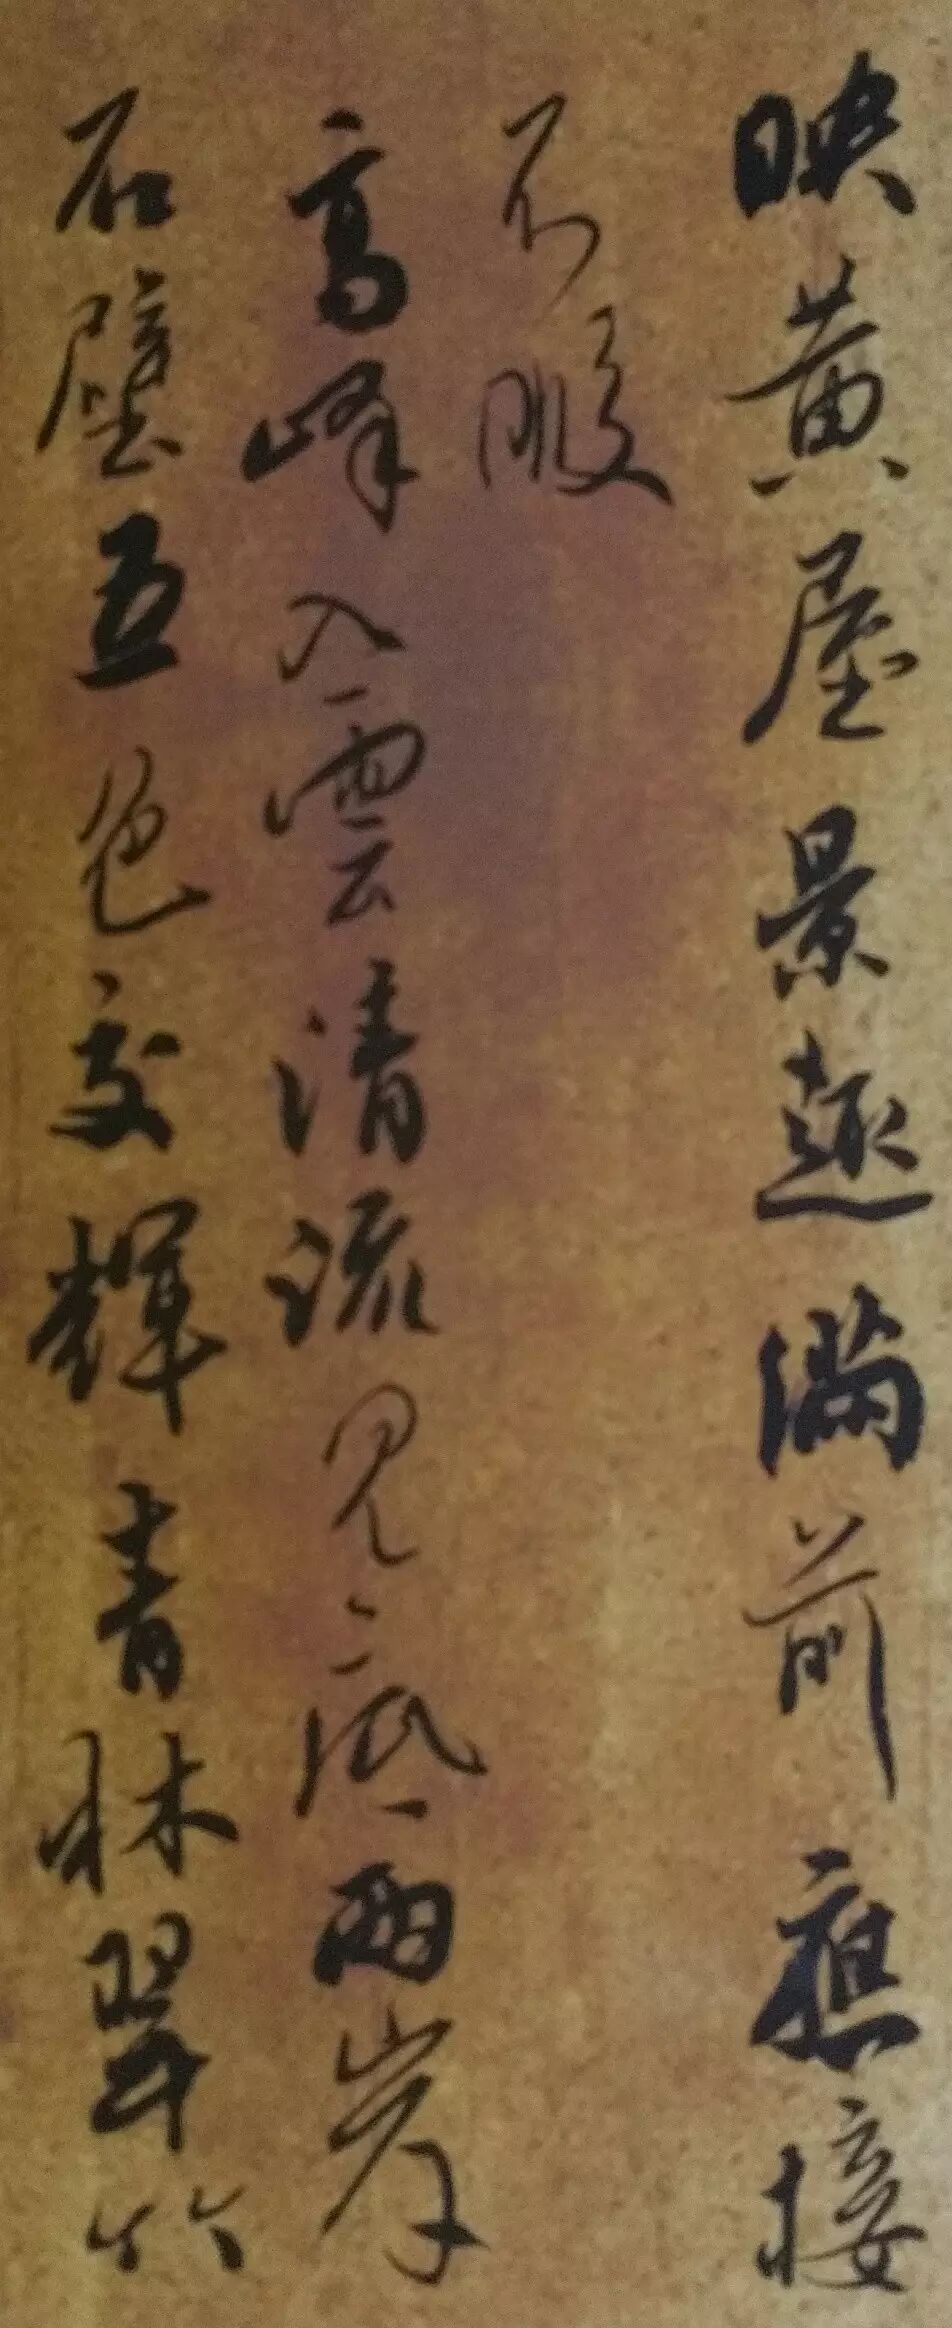 映黄屋景趣满前應接
不暇
高峰入雲清流見底兩岸
石壁五色交輝青林翠竹